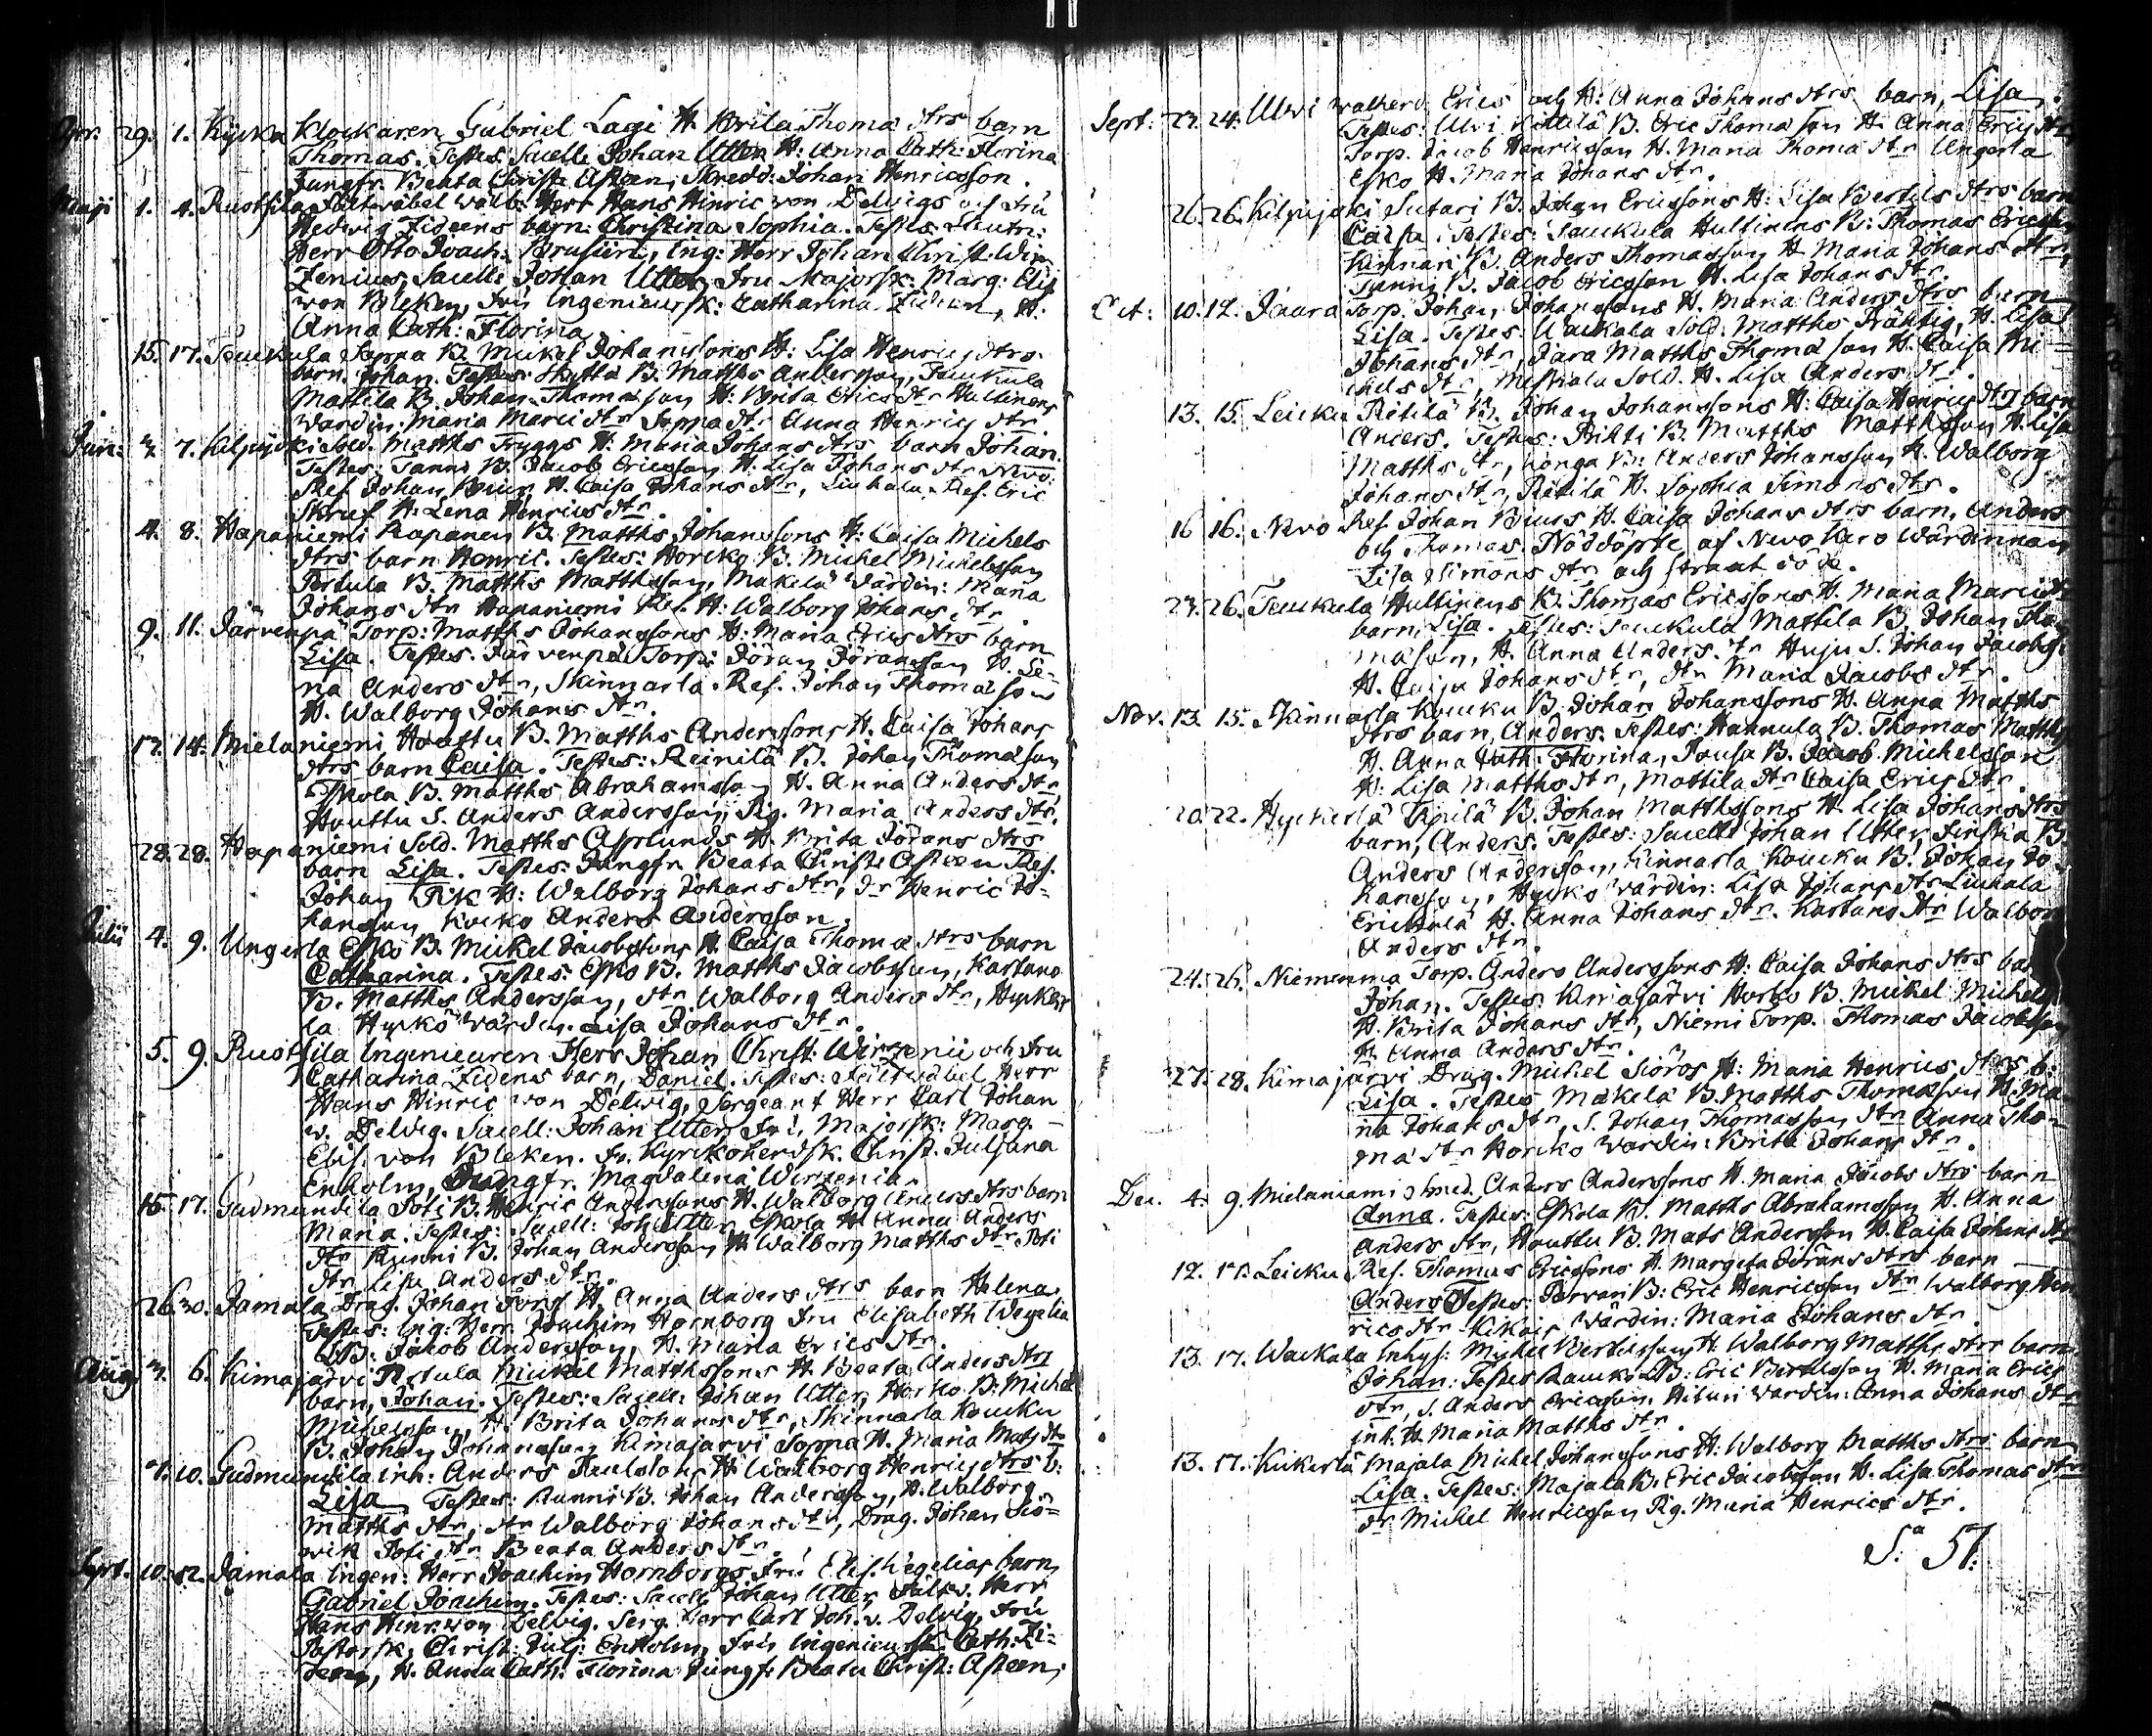 Apr. 29. 1. Kycka Klockaren Gabriel Lagi H. Brita Thomæ dtrs barn
Thomas. Testes: Sacell. Johan Utter H. Anna Cath: Florina
Jungfr. Beata Christ: Asteen, Skredd: Johan Henricsson.
Maji 1. 4. Rustsila Fältwäbel wälb: Herr Hans Hinric von Delvigs och Fru
Hedwig Zideens barn: Christina Sophia. Testes: Lieutn:
Herr Otto Joach: Brusiin, Ing: Herr Johan Christ. Wir
zenius, Sacell: Johan Utter, Fru Majorsk: Marg: Elis
von Bleken, Fru Ingenieursk: Catharina Zideen, H.
Anna Cath: Florina
15. 17. Tauckula Soppa B. Mickel Johanssons H: Lisa Henrics dtrs
barn. Johan. Testes: B. Matths Andersson, Tauckula
Mattila B. Johan Thomæson H: Brita Erics dtr Hultinens
Wärdin: Maria Marci dtr Soppa dtr Anna Henrics dtr
Juni: 7. Kilpijoki Sold. Matths Tryggs H: Maria Johans dtrs barn Johan.
Testes: Tanni B. Jacob Ericsson H. Lisa Johans dtr Nevo:
Ref. Johan Biur, H. Caisa Johans dtr, Liuhala Ref. Eric
Skruf H. Lena Henrics dtr.
4. 8. Hapaniemi Rapanen B. Matths Johanssons H: Caisa Michels
dtrs barn Henric. Testes: Horcko B. Michel Michelsson
Pertula B. Matths Matthsson, Makelä Wärdin: Maria
Johans dtr Hapaniemi Ref. H: Walborg Johans dtr
9. 11. Järvenpä Torp: Matths Johanssons H: Maria Erics dtrs barn
Lisa. Testes. Järvenpä Torp: Jöran Jöransson H. Le-
na Anders dtr, Skinnarla Ref. Johan Thomæson
H. Walborg Johans dtr.
12. 14. Mielaniemi Houttu B. Matths Anderssons H. Caisa Johans
dtrs barn Caisa. Testes: Reinilä B. Johan Thomæson
Eskola B. Matths Abrahamsson H. Anna Anders dtr
Houttu S. Anders Andersson, Pig. Maria Anders dtr.
28. 28. Hapaniemi Sold. Matths Asplunds H. Brita Jörans dtrs
barn Lisa. Testes: Jungfr. Beata Christ: Asteen Ref.
Johan Pik H: Walborg Johans dtr, dr Henric Jo-
hansson Kocko Anders Andersson.
Julii 4. 9. Ungerla Esko B. Mickel Jacobssons H. Caisa Thomæ dtrs barn
Catharina. Testes: Esko B. Matths Jacobsson, Kartano
B. Matths Andersson, dtr Walborg Anders dtr, Hycker
la Hyckö wärdin. Lisa Johans dtr.
5. 9. Rustsila Ingenieuren Herr Johan Christ. Wirzenii och Fru
Catharina Zidens barn, Daniel. Testes: Fältwäbel Herr
Hans Hinric von Delwig, Sergeant Herr Carl Johan
v. Delvig. Sacell: Johan Utter, Fru, Majorsk: Marg.
Elis. von Bleken. Fr. Kyrckoherdsk. Christ. Juliana
Enholm, Jungfr. Magdalena Wirzenia
15. 17. Gudmundila Poti B. Henric Anderssons H. Walborg Anders dtrs barn
Maria. Testes: Sacell: Joh. Utter, Eskola H. Anna Anders
dtr Runni B. Johan Andersson H. Walborg Matths dtr Poti
dtr Lisa Anders dtr.
26. 30. Jamala Drag. Johan Fors H. Anna Anders dtrs barn Helena.
Testes: Ing: Herr Joachim Hornborg Fru Elisabeth Wegelia
B: Jacob Andersson, H. Maria Erics dtr.
Aug. 6. Kimajärvi Pertula Mickel Matthssons H. Beata Anders dtrs
barn, Johan. Testes: Sacell: Johan Utter, Horko B. Michel
Michelsson, H. Brita Johans dtr, Skinnarla Koucku
B. Johan Johansson Kimajarvi Soppa H. Maria Mats dtr
10. Gudmundila inh: Anders Paulssons H. Walborg Henrics dtrs b:
Lisa Testes: Runni B. Johan Andersson, H. Walborg
Matths dtr, dtr Walborg Johans dtr, Drag. Johan Siö-
wik Poti dtr Beata Anders dtr.
Sept. 10. 12. Jamala Ingen: Herr Joachim Hornborgs Fru Elis. Wegelias barn
Gabriel Joachim. Testes: Sacell. Johan Utter, Fältv. Herr
Hans Hinr. von Delvig. Serg. Herr Carl Joh. v. Delvig, Fru
Pastorsk, Christ: Julj: Enholm, Fru Ingenieursk. Cath. Zi-
deen, H. Anna Cath: Florina Jungfr Beata Christ: Asteen,
Sept: 22. 24. Ulvi Erics och H: Anna Johans dtrs barn, Lisa.
Testes: Ulvi Kittilä B. Eric Thomæson H. Anna Erics dtr
Torp. Jacob Henricsson H. Maria Thomæ dtr Ungerla
Esko H. Maria Johans dtr.
26. 26. Kilpijoki Sutari B. Johan Ericssons H: Lisa Bertils dtrs barn
Caisa. Testes: Tauckula Hultinens B: Thomas Ericsson
Kinnari B. Anders Thomasson H. Maria Johans dtr,
Tanni B. Jacob Ericsson H. Lisa Johans dtr.
Oct: 10. 12. Jaara Torp. Johan Johanssons H. Maria Anders dtrs barn
Lisa. Testes: Wackala Sold: Matths Präktig, H. Lisa
Johans dtr, Jara Matths Thomæson H. Caisa Mi-
chels dtr, Sold. H. Lisa Anders dtr.
13. 15. Leicku Ritilä B. Johan Johanssons H: Caisa Henrics dtrs barn
Anders. Testes: Prihti B. Matths Matthsson H. Lisa
Matths dtr, Honga B. Anders Johansson H. Walborg
Johans dtr, Ritilä H. Sophia Simons dtr.
16. 16. Nevo Ref. Johan Biurs H. Caisa Johans dtrs barn, Anders
och Thomas. Nöddöpte af Nevo Kero Wärdinnan
Lisa Simons dtr och straxt döde.
26. Tauckula Hultinens B. Thomas Ericssons H. Maria Marci dtrs
barn, Lisa. Testes: Tauckula Mattila B. Johan Tho-
mæson, H. Anna Anders dtr Huju S. Johan Jacobs.
H. Caisa Johans dtr, dtr Maria Jacobs dtr.
Nov. 13. 15. Skinnarla Koucku B. Johan Johanssons H. Anna Matths
dtrs barn, Anders. Testes: Hannula B. Thomas Matths
H. Anna Cath: Florina, Pousa B. Jacob Michelsson
H: Lisa Matths dtr, Mattila dtr Caisa Erics dtr.
20. 22. Hyckerlä Tpilä B. Johan Matthssons H. Lisa Johans dtrs
barn, Anders. Testes: Sacell: Johan Utter, B
Anders Andersson, Skinnarla Koucku B. Johan Jo-
hansson, Hyckö Wärdin: Lisa Johans dtr Liuhala
Erickulä H. Anna Johans dtr. Kartano dtr Walborg
Anders dtr.
24. 26. Niemenma Torp. Anders Anderssons H: Caisa Johans dtrs barn
Johan. Testes: Kimajärvi Horko B. Mickel Michels
H. Brita Johans dtr, Niemi Torp. Thomas Jacobsson
H. Anna Anders dtr.
27. 28. Kimajärvi Drag. Mickel Siöros H: Maria Henrics dtrs b:
Lisa. Testes Makelä B. Matths Thomæson H. Ma
ria Johans dtr, S. Johan Thomasson dtr Anna Tho-
mæ dtr Horcko wärdin: Brita Johans dtr.
Dec. 4. 9. Mielaniemi Smed. Anders Anderssons H. Maria Jacobs dtrs barn
Anna. Testes: Eskola B. Matths Abrahamsson H. Anna
Anders dtr, Houttu B. Mats Andersson H. Caisa Johans dtr
12. 17. Leicku Ref. Thomas Ericssons H. Margeta Jörans dtrs barn
Anders Testes: Parvan B: Eric Henricsson dtr Walborg Hen
rics dtr Kikoir Wärdin: Maria Johans dtr.
13. 17. Wackala Inhys: Michel Bertilssons H. Walborg Matths dtrs barn
Johan: Testes B: Eric Bertilsson H. Maria Erics
dtr, S. Anders Ericsson, Hituri wärdin: Anna Johans dtr
inh. H. Maria Matths dtr.
13. 17. Kickerlä Majala Michel Johanssons H: Walborg Matths dtrs barn
Lisa. Testes: Majala B. Eric Jacobsson H. Lisa Thomas dtr
dr Michel Henricsson Pig. Maria Henrics dtr.
S:a 51.